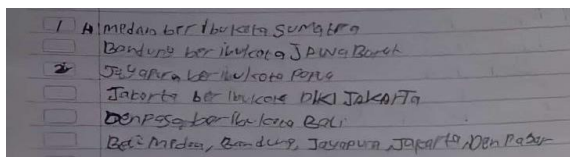 1 A medan ber ibukota Sumatra
Bandung ber ibukota Jawa Barat
2 Jayapura ber ibukota Papua
Jakarta ber ibukota DKI JAKARTA
Denpasa ber ibukota Bali
Medan, Bandung, Jayapura, Jakarta, Den Pasar